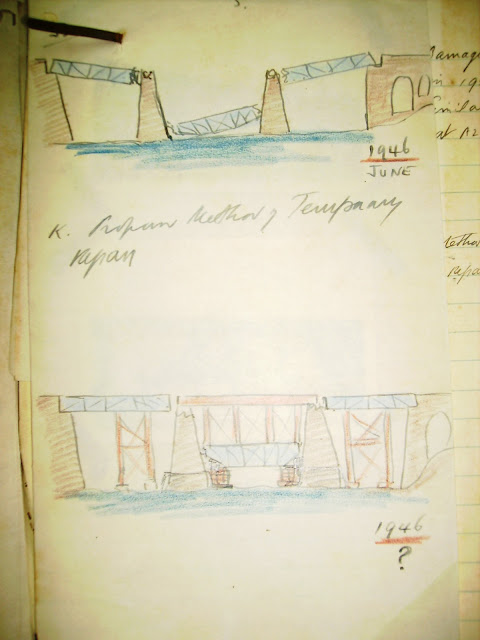 3.
1946
JUNE
K. Proposed Method of Temporary
Repair
1946
?
Damage
in 19
Similar
at
Method
repa